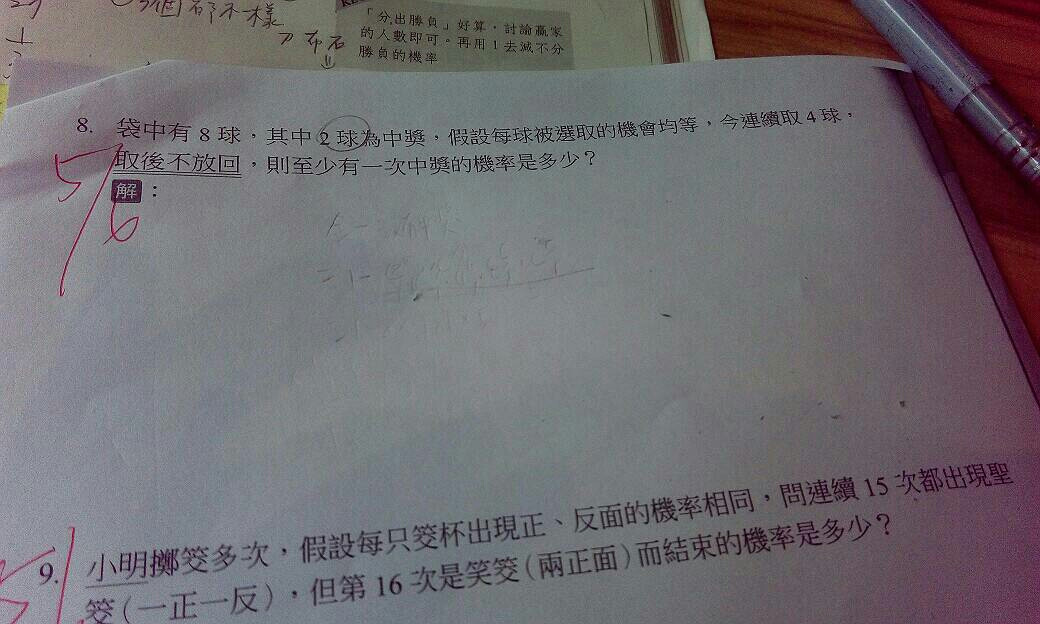 個都不樣
刀布石
「分出勝負」好算,討論贏家
的人數即可。再用1去減不分
勝負的機率
8. 袋中有8球,其中2球為中獎,假設每球被選取的機會均等,今連續取4球,
取後不放回,則至少有一次中獎的機率是多少?
5/6
解:
9. 小明擲筊多次,假設每只筊杯出現正、反面的機率相同,問連續15次都出現聖
筊(一正一反),但第16次是笑筊(兩正面)而結束的機率是多少?